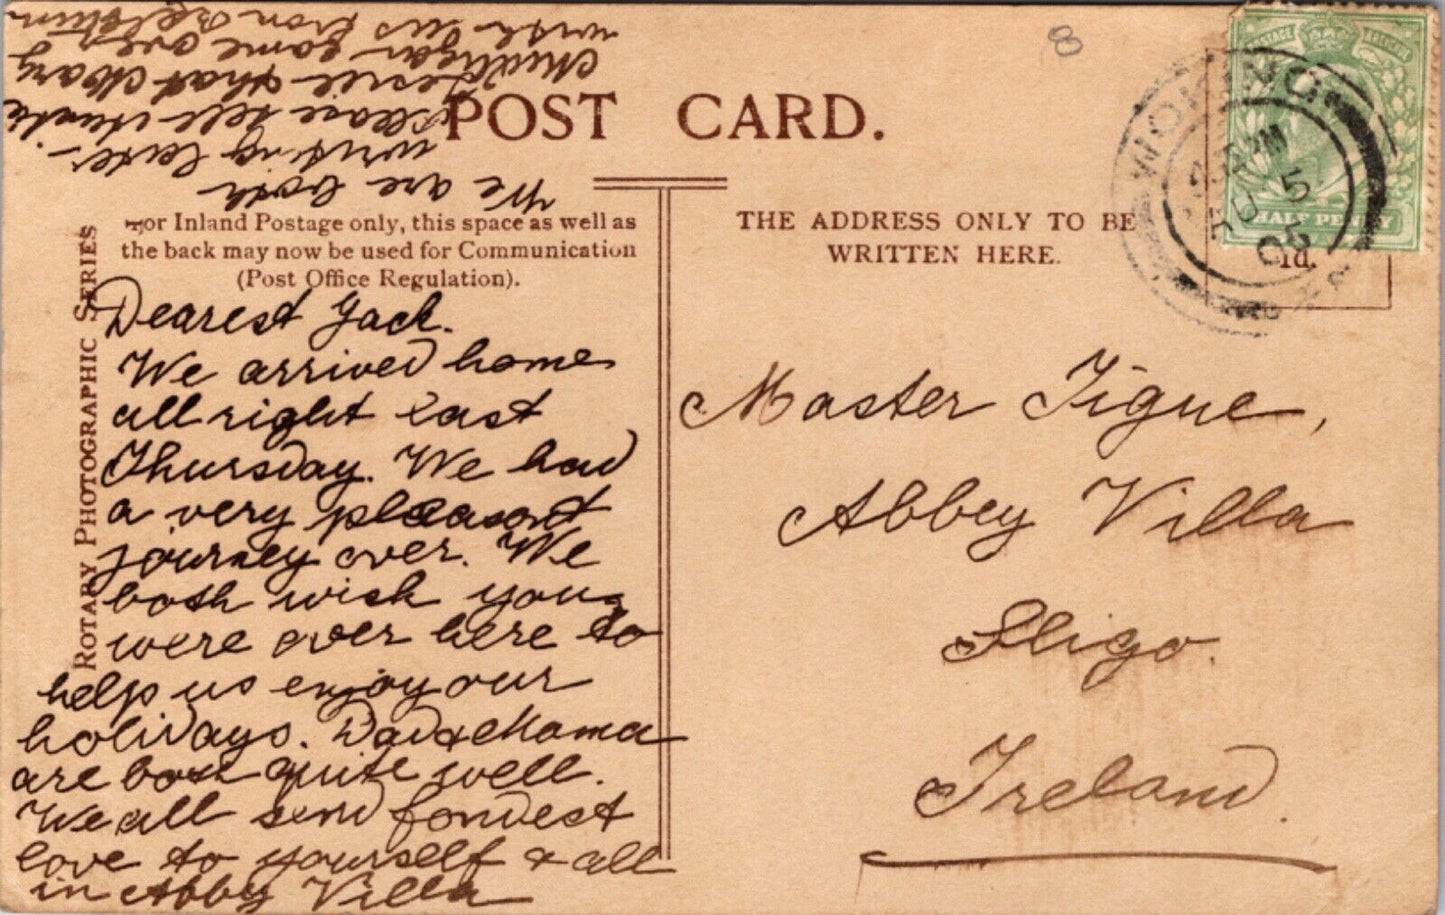 We are both
writing later.
Please tell Auntie
that Mary
Mulligan came over
with us from
8
POST CARD.
For Inland Postage only, this space as well as
the back may now be used for Communication
(Post Office Regulation).
THE ADDRESS ONLY TO BE
WRITTEN HERE.
ROTARY PHOTOGRAPHIC SERIES
Dearest Jack.
We arrived home
all right last
Thursday. We had
a very pleasant
journey over. We
both wish you
were over here to
help us enjoy our
holidays. Dad & Mama
are both quite well.
We all send fondest
love to yourself & all
in Abby Villa
Master Tigue,
Abbey Villa
Sligo.
Ireland.
POSTAGE REVENUE
HALF PENNY
WOKING
PM
AU 5
05